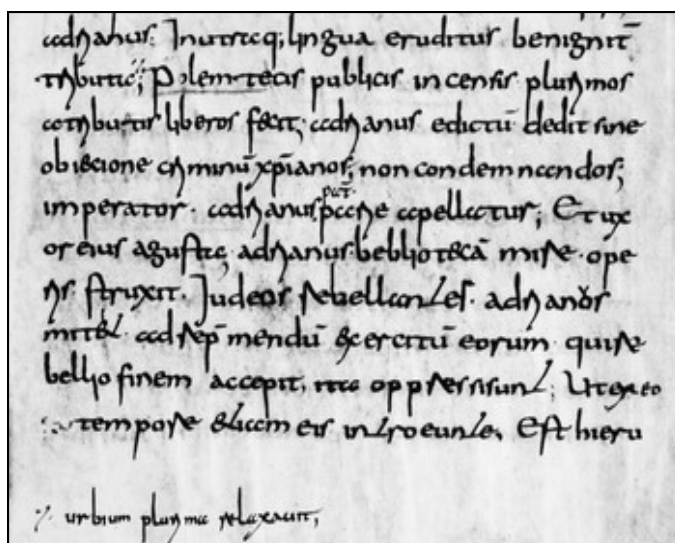 adrianus; Inutraq; lingua eruditus benignit̄
publicis incensis plurimos
atributis liberos fecit; adrianus edictū dedit sine
obiecione criminū xp̄ianos; non condemnandos;
pat̄
imperator. adrianus patrie apellatus; Et ux
or eius agusta; adrianus bebliotecā mire ope
ris struxit. Judeos rebellantes. adrianus
mittet ad rep̄mendū exercitū eorum quire
bellio finem accepit, ita oppressi sunt; Ut ex eo
tempore introeunte; Est hieru
urbium plurima relaxauit;